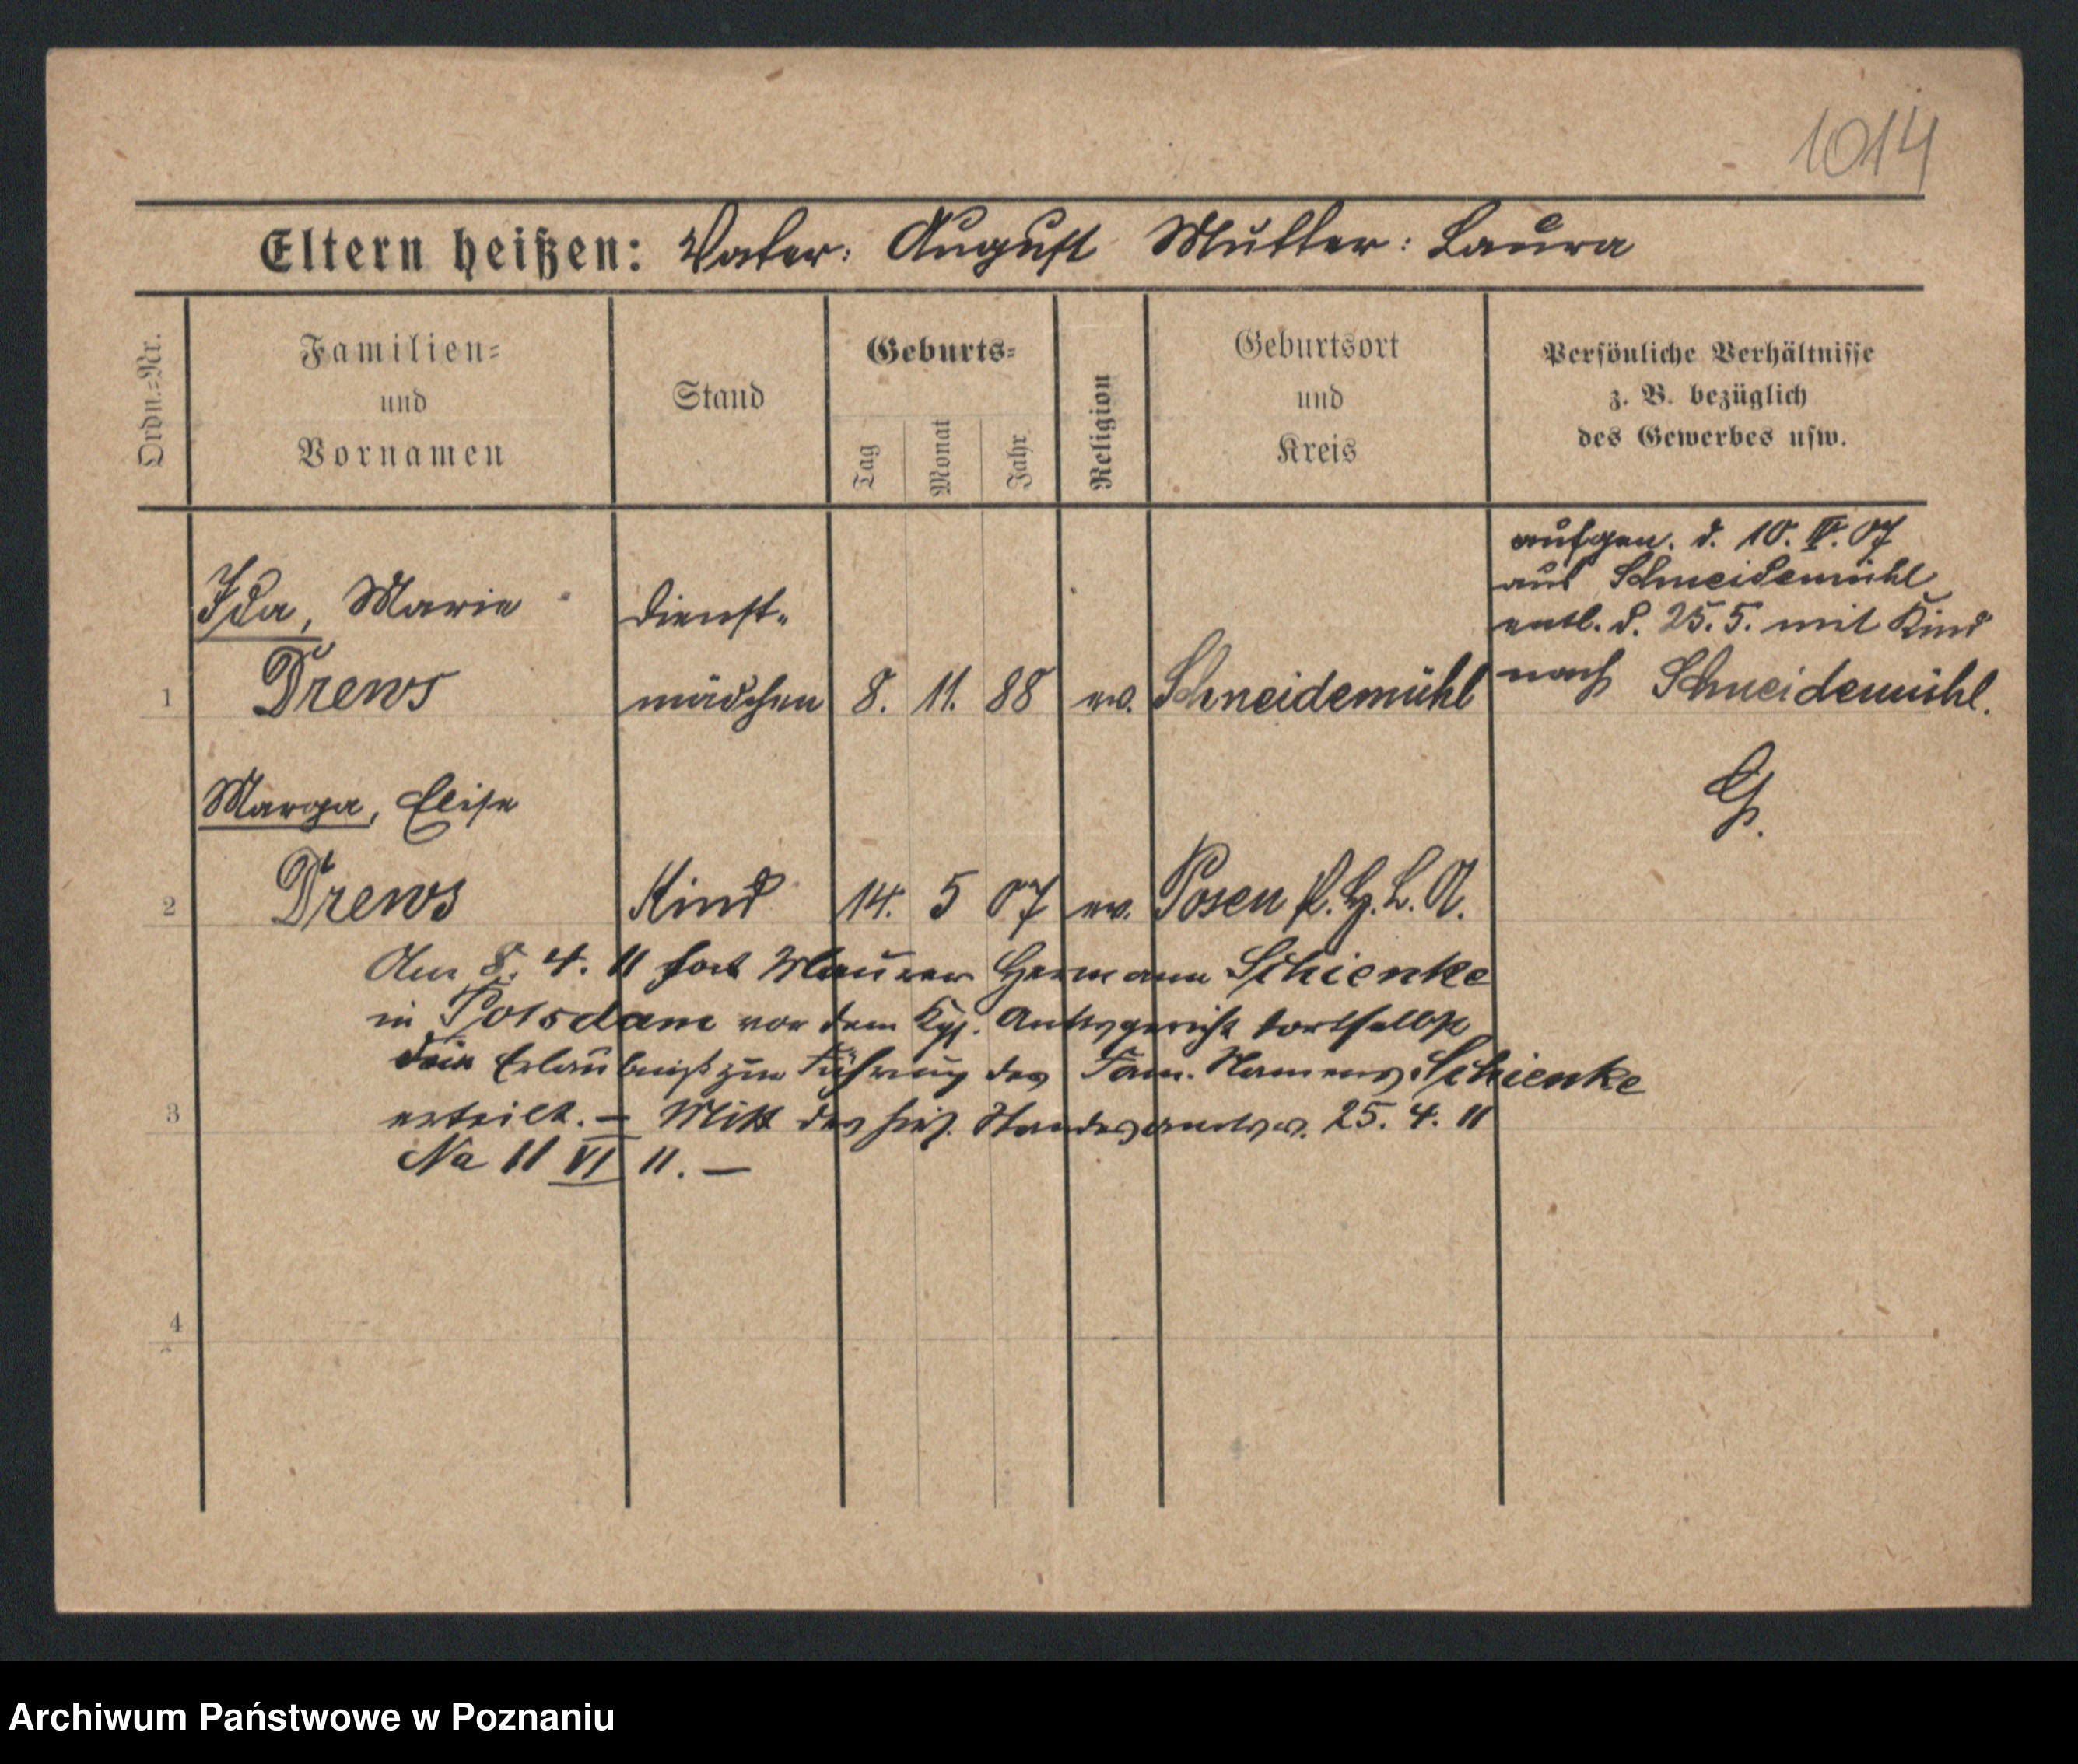 1014
Eltern heißen: Vater: August Mutter: Laura
Ordn.=Nr.
Familien=
und
Vornamen
Stand
Geburts=
Tag
Monat
Jahr
Religion
Geburtsort
und
Kreis
Persönliche Verhältnisse
z. B. bezüglich
des Gewerbes usw.
1
Ida, Marie
Drews
Dienst=
mädchen
8. 11. 88
ev.
Schneidemühl
aufgen. d. 10. IV. 07
aus Schneidemühl
entl. d. 25. 5. mit Kind
nach Schneidemühl.
G.
2
Marga, Elise
Drews
Kind
14. 5 07
ev.
Posen P. H. L. A.
Am 8. 4. 11 hat Maurer Hermann Schienke
in Potsdam vor dem Kgl. Amtsgericht dortselbst
die Erlaubniß zur Führung des Fam. Namens Schienke
3
erteilt. – Mitt des hies. Standesamts v. 25. 4. 11
Na 11 VI 11. –
4
Archiwum Państwowe w Poznaniu